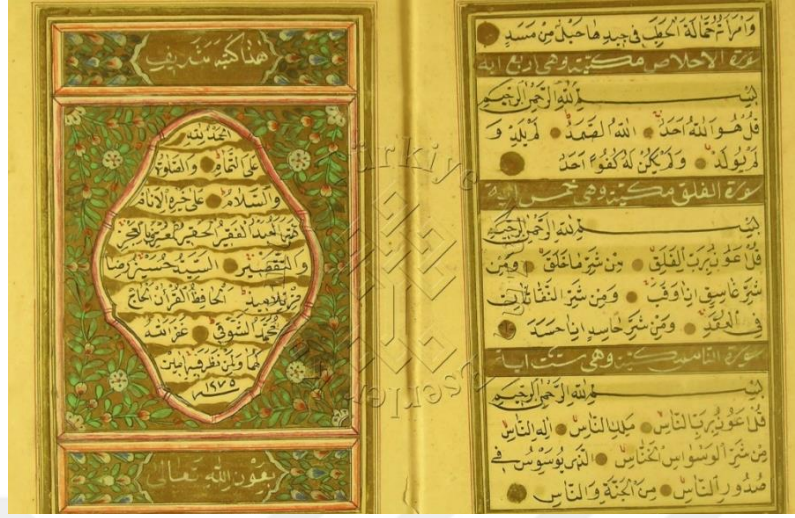 وَامْرَأَتُهُ حَمَّالَةَ الْحَطَبِ فِي جِيدِهَا حَبْلٌ مِنْ مَسَدٍ
سورة الاخلاص مكية وهي اربع اية
بِسْمِ اللهِ الرَّحْمٰنِ الرَّحِيمِ
قُلْ هُوَ اللهُ اَحَدٌ اَللهُ الصَّمَدُ لَمْ يَلِدْ وَ
لَمْ يُولَدْ وَلَمْ يَكُنْ لَهُ كُفُوًا اَحَدٌ
سورة الفلق مكية وهي خمس اية
بِسْمِ اللهِ الرَّحْمٰنِ الرَّحِيمِ
قُلْ اَعُوذُ بِرَبِّ الْفَلَقِ مِنْ شَرِّ مَا خَلَقَ وَمِنْ
شَرِّ غَاسِقٍ اِذَا وَقَبَ وَمِنْ شَرِّ النَّفَّاثَاتِ
فِي الْعُقَدِ وَمِنْ شَرِّ حَاسِدٍ اِذَا حَسَدَ
سورة الناس مكية وهي ست اية
بِسْمِ اللهِ الرَّحْمٰنِ الرَّحِيمِ
قُلْ اَعُوذُ بِرَبِّ النَّاسِ مَلِكِ النَّاسِ اِلٰهِ النَّاسِ
مِنْ شَرِّ الْوَسْوَاسِ الْخَنَّاسِ اَلَّذِي يُوَسْوِسُ فِي
صُدُورِ النَّاسِ مِنَ الْجِنَّةِ وَالنَّاسِ
هذا كتبه
الحمد لله
على التمام والصلوة
والسلام على خير الانام
كتب هذا الفقير الحقير المعترف بالعجز
والتقصير السيد حسين رضا
من تلاميذ الحافظ القرآن الحاج
محمد الشوقي غفر الله
لهما ولمن نظر فيه امين
١٢٧٥ سنه
بعون الله تعالى
türkiye
eserler